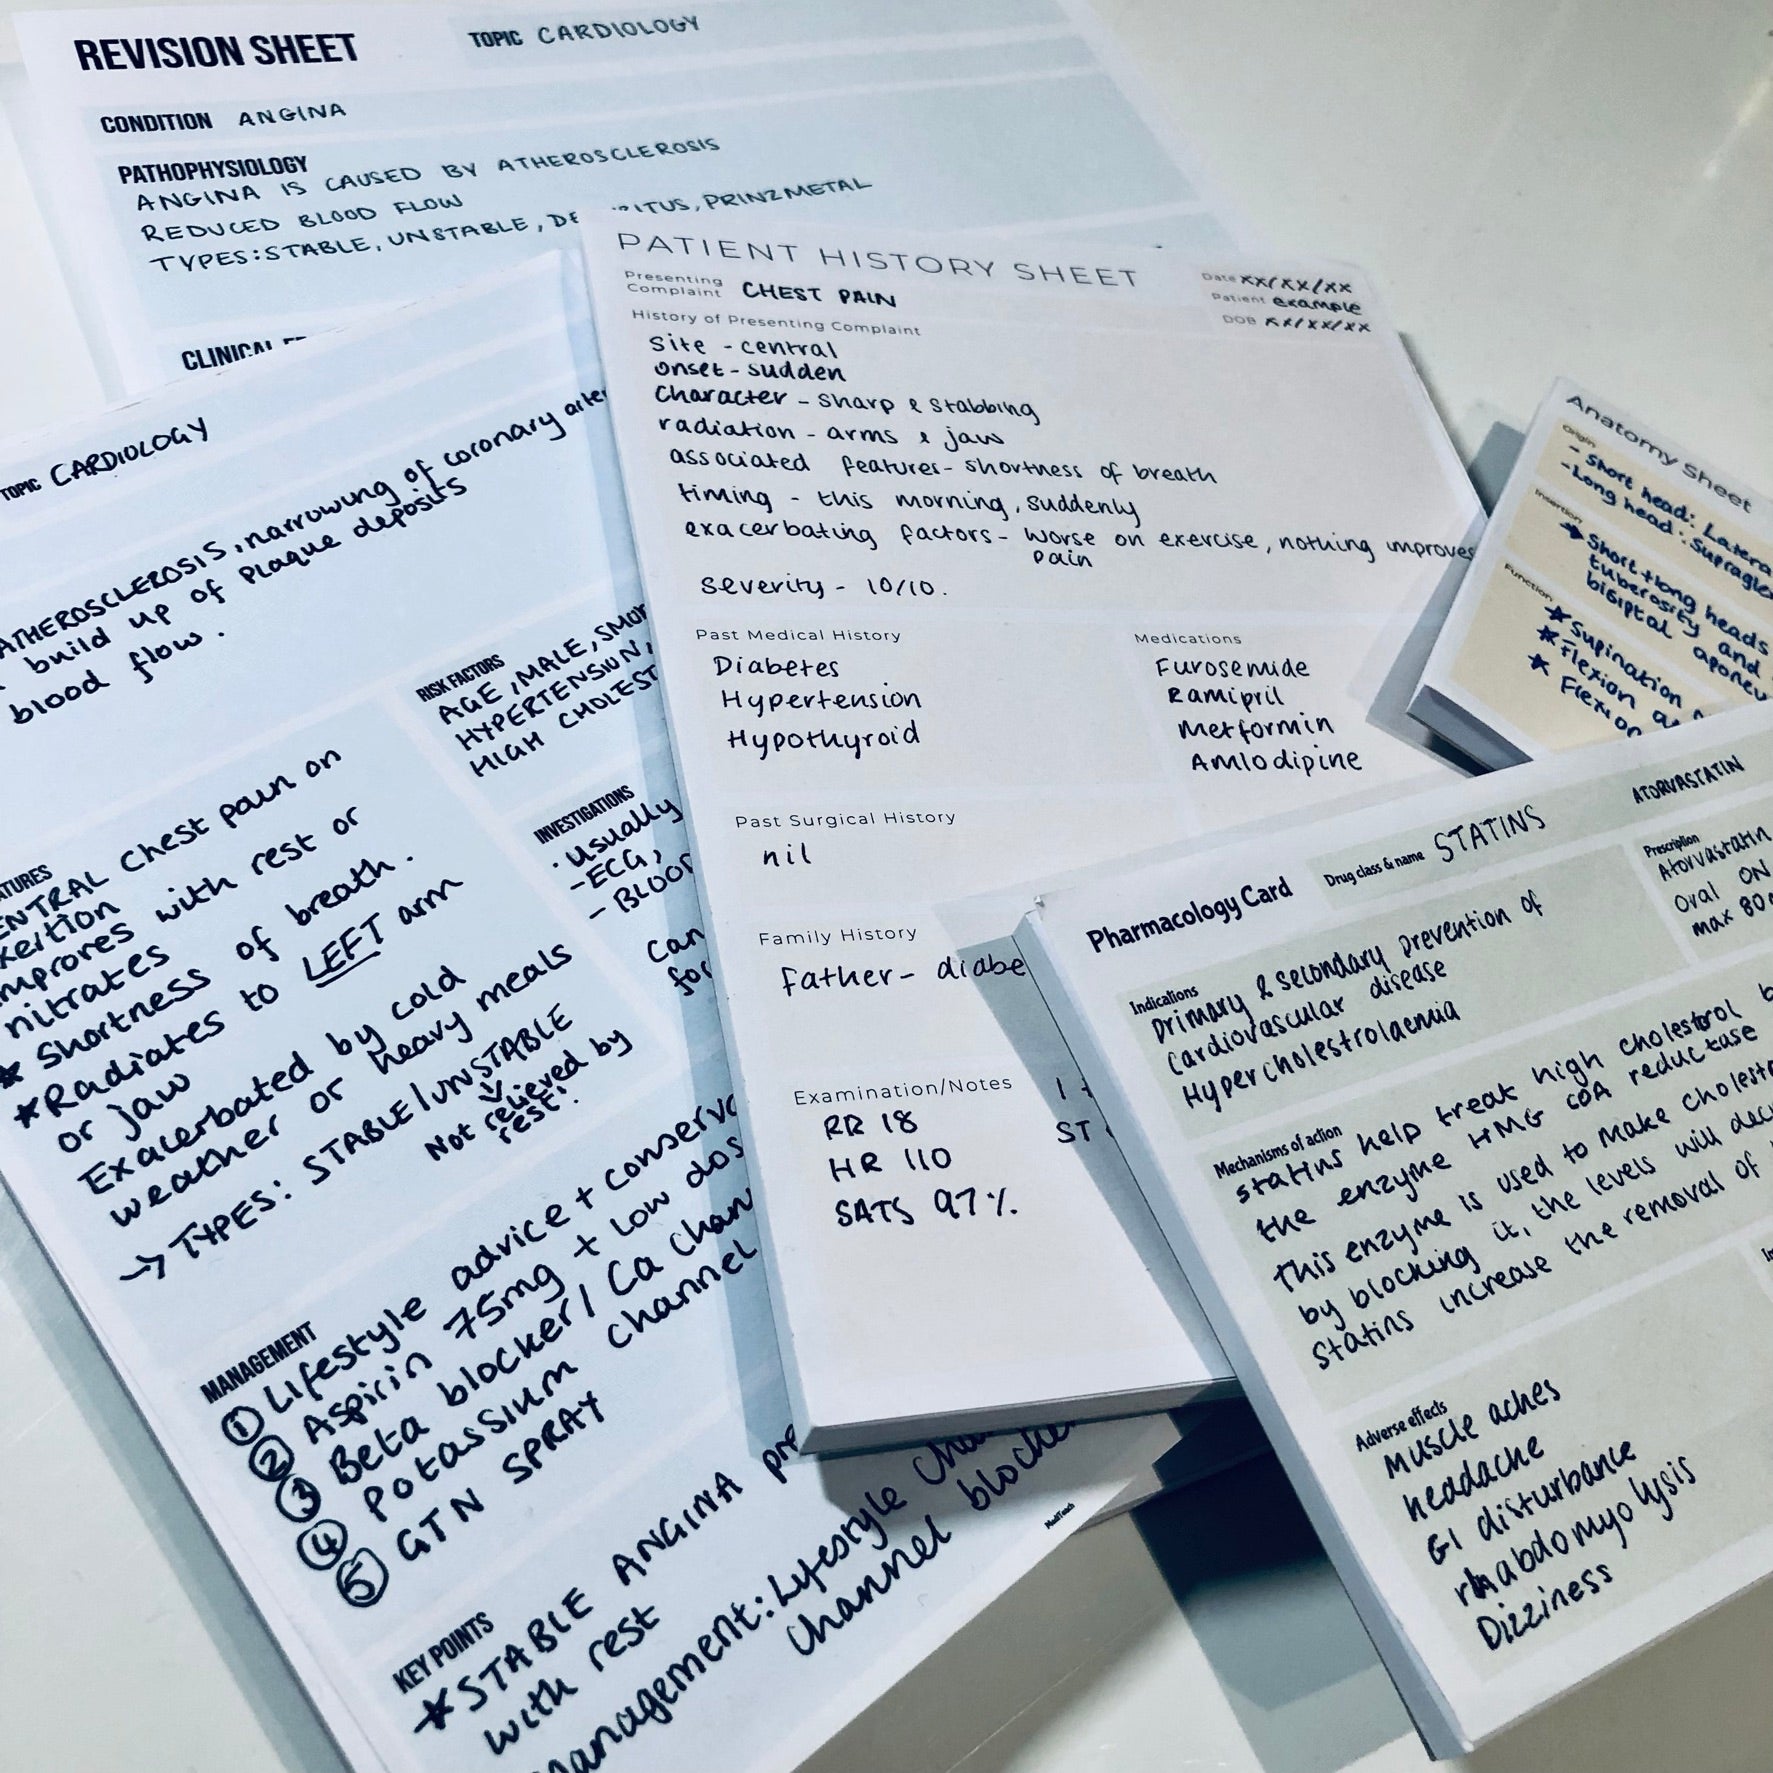 REVISION SHEET
TOPIC CARDIOLOGY
CONDITION ANGINA
PATHOPHYSIOLOGY
ANGINA IS CAUSED BY ATHEROSCLEROSIS
REDUCED BLOOD FLOW
TYPES: STABLE, UNSTABLE, PRINZMETAL
CLINICAL
TOPIC CARDIOLOGY
ATHEROSCLEROSIS, narrowing of coronary
build up of plaque deposits
blood flow.
RISK FACTORS
AGE, MALE,
HYPERTENSION,
HIGH
chest pain on
with rest or
nitrates
* Shortness of breath.
* Radiates to LEFT arm
or jaw
Exacerbated by cold
weather or heavy meals
→ TYPES: STABLE / UNSTABLE
Not relieved by
rest!
INVESTIGATIONS
. usually
- ECG,
-
Can
MANAGEMENT
① Lifestyle advice +
② Aspirin 75mg + low
③ Beta blocker / Ca
④ Potassium channel
⑤ GTN SPRAY
KEY POINTS
* STABLE ANGINA
with rest
Lifestyle
channel
MedTeach
PATIENT HISTORY SHEET
Date xx/xx/xx
Patient example
DOB xx/xx/xx
Presenting
Complaint CHEST PAIN
History of Presenting Complaint
Site - central
onset - sudden
Character - sharp & stabbing
radiation - arms & jaw
associated features - shortness of breath
timing - this morning, suddenly
exacerbating factors - worse on exercise, nothing improves
pain
severity - 10/10.
Past Medical History
Diabetes
Hypertension
Hypothyroid
Medications
Furosemide
Ramipril
Metformin
Amlodipine
Past Surgical History
nil
Family History
Father -
Examination/Notes
RR 18
HR 110
SATS 97%
ST
Anatomy Sheet
Origin
- Short head:
- Long head:
Insertion
Short + long heads
tuberosity and
bicipital
Function
* Supination
* Flexion
*
Pharmacology Card
Drug class & name STATINS
ATORVASTATIN
Indications
Primary & secondary prevention of
cardiovascular disease
Hypercholestrolaemia
Prescription
Atorvastatin
Oral ON
max
Mechanisms of action
statins help treat high cholestrol
the enzyme HMG COA reductase
This enzyme is used to make
by blocking it, the levels will
Statins increase the removal of
Adverse effects
Muscle aches
headache
GI disturbance
rhabdomyolysis
Dizziness